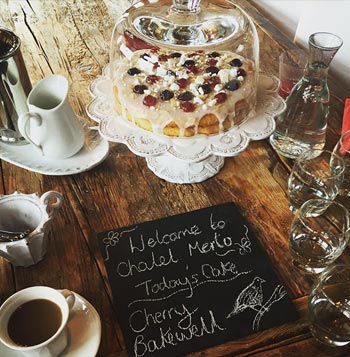 Welcome to
Chalet Merlo
Today's Cake
Cherry
Bakewell